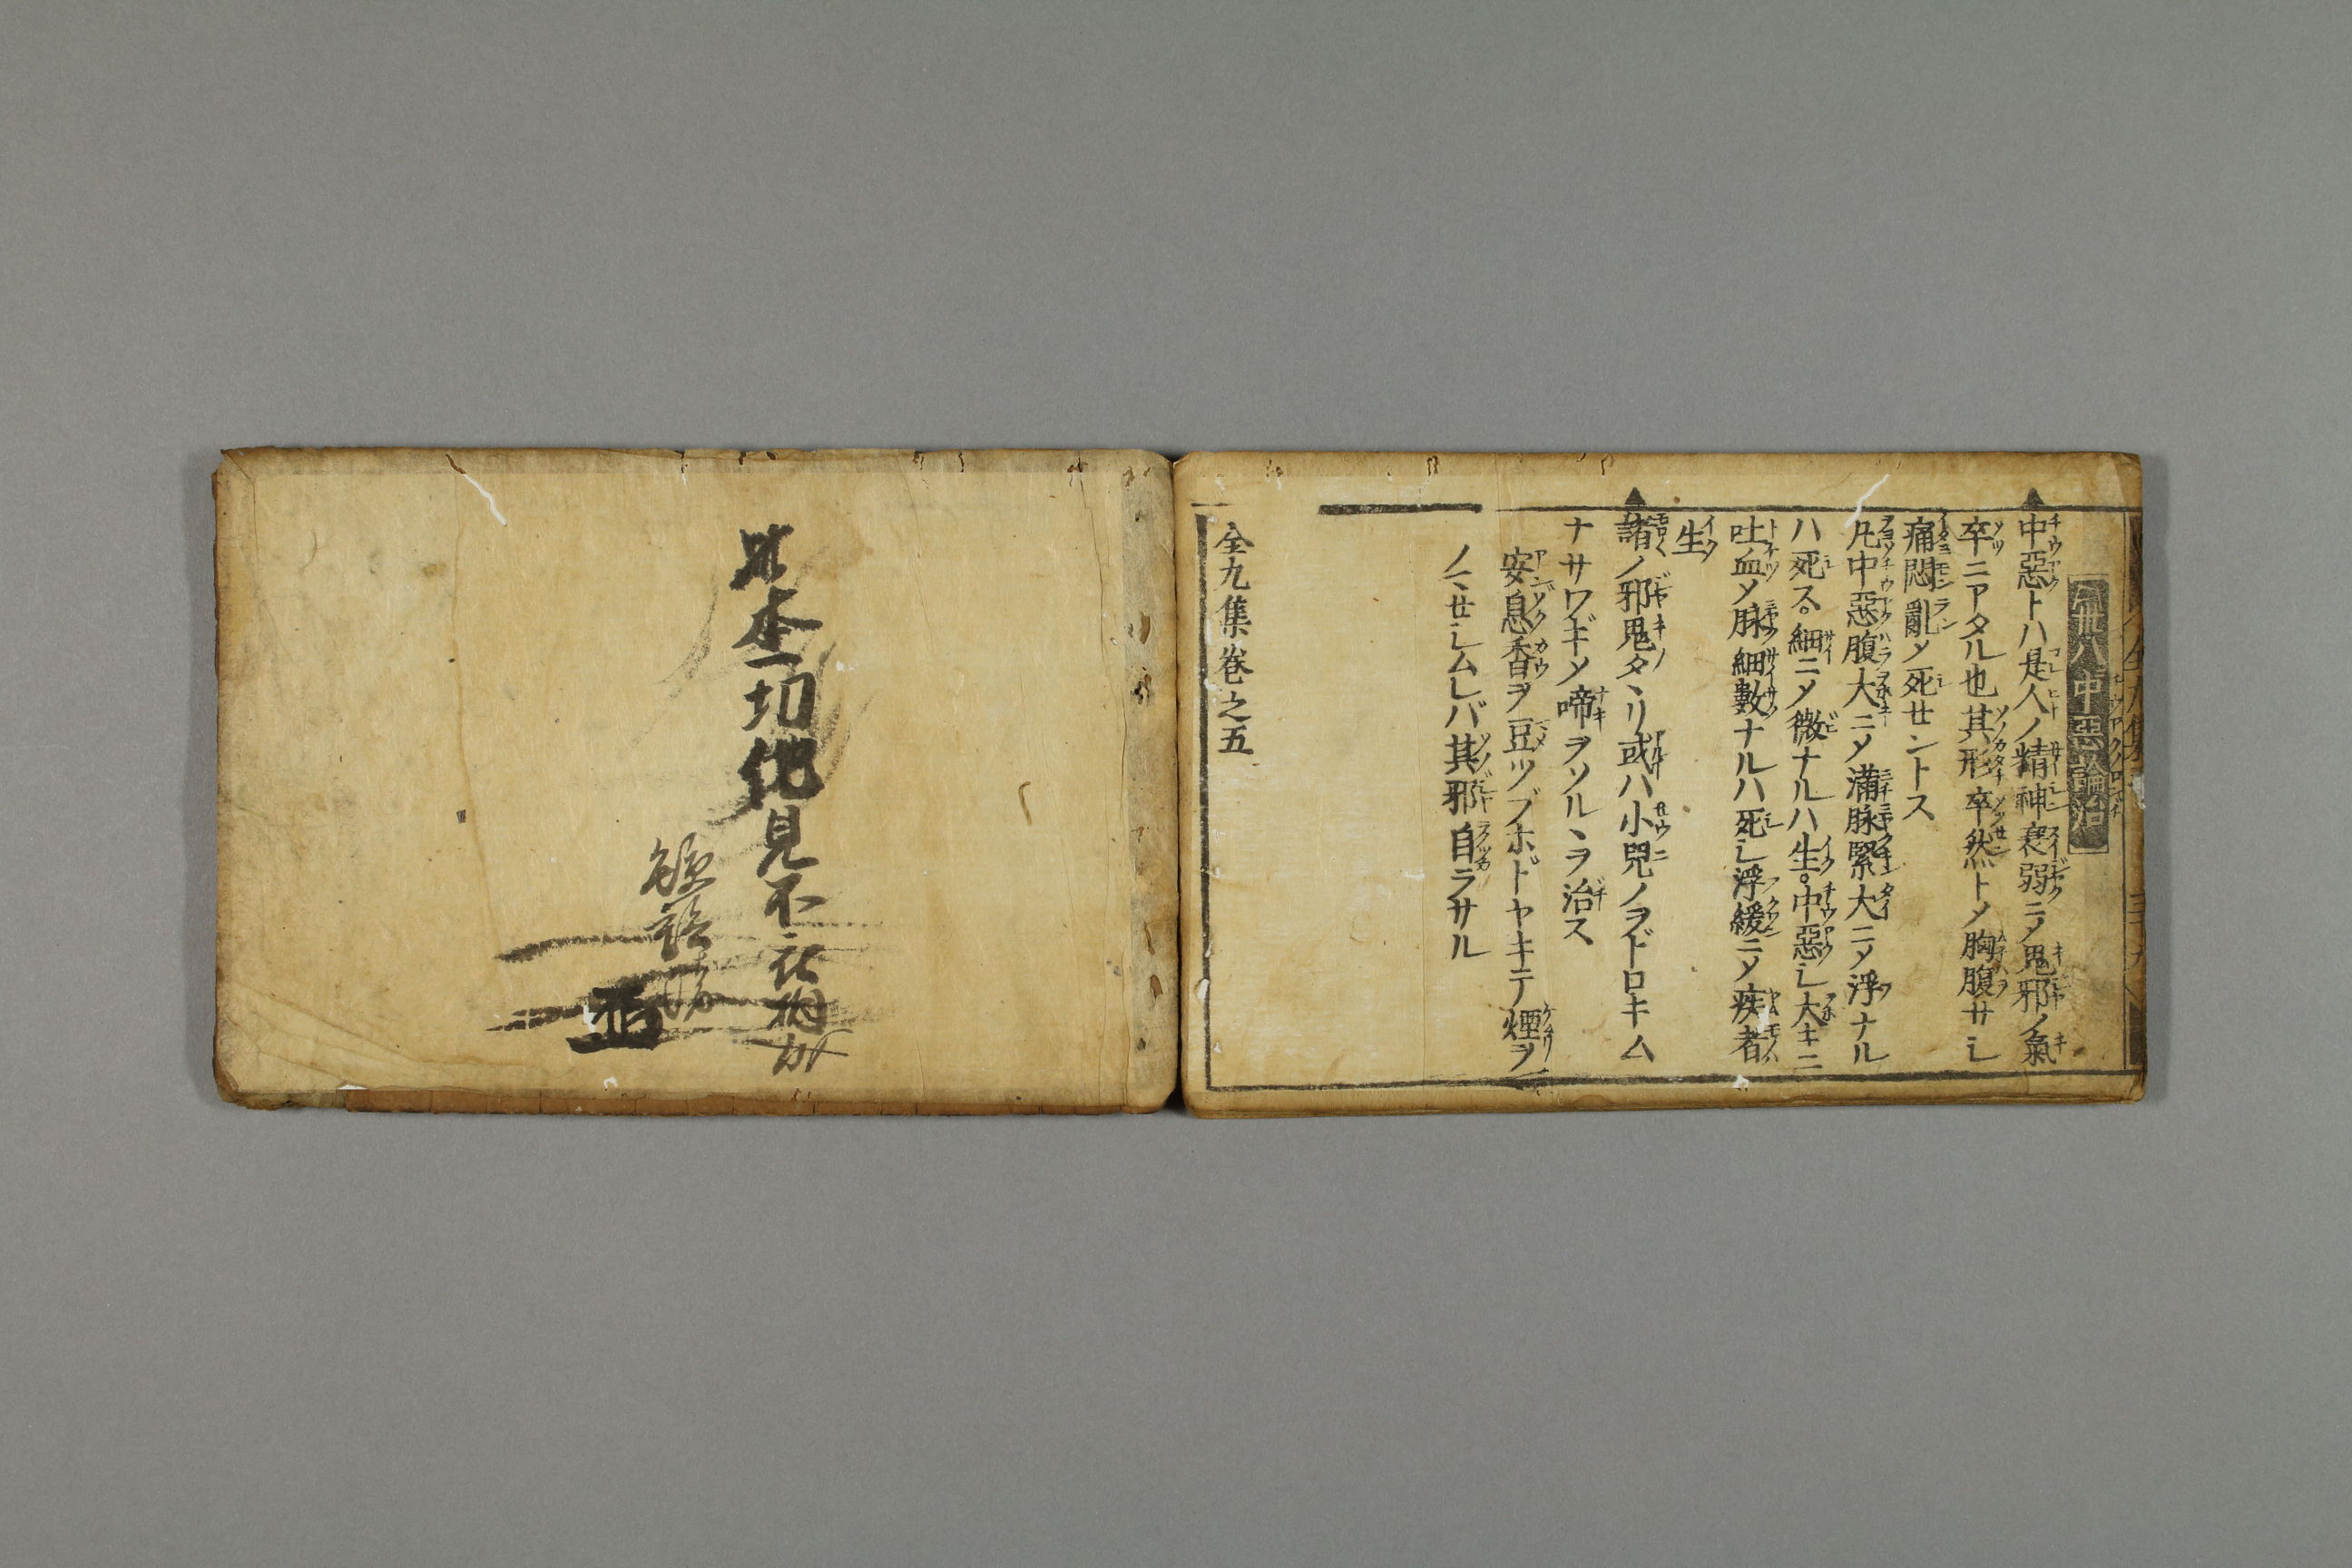 卅八中惡論治
中惡トハ是人ノ精神衰弱ニメ鬼邪ノ氣
卒ニアタル也其形卒然トメ胸腹サシ
痛悶亂メ死セントス
凡中惡腹大ニメ滿脉緊大ニメ浮ナル
ハ死ス。細ニメ微ナルハ生。中惡シ大キニ
吐血メ脉細數ナルハ死シ浮緩ニメ疾者
生
諸ノ邪鬼タヽリ或ハ小兒ノヲドロキム
ナサワギメ啼ヲソルヽヲ治ス
安息香ヲ豆ツブホドヤキテ煙ヲ
ノマセシムレバ其邪自ラサル
全九集巻之五
此本一切他見不